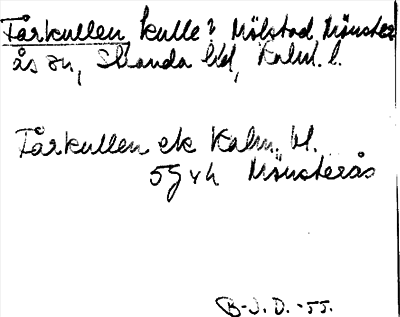 Fårkullen, kulle? Mölstad Mönster
ås sn, Stranda hd, Kalm. l.
Fårkullen ek Kalm. bl.
5g vh Mönsterås
B-J.D. -55.